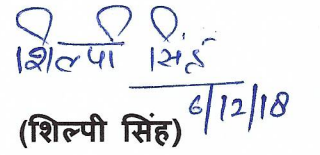 शिल्पी सिंह
6/12/18
(शिल्पी सिंह)